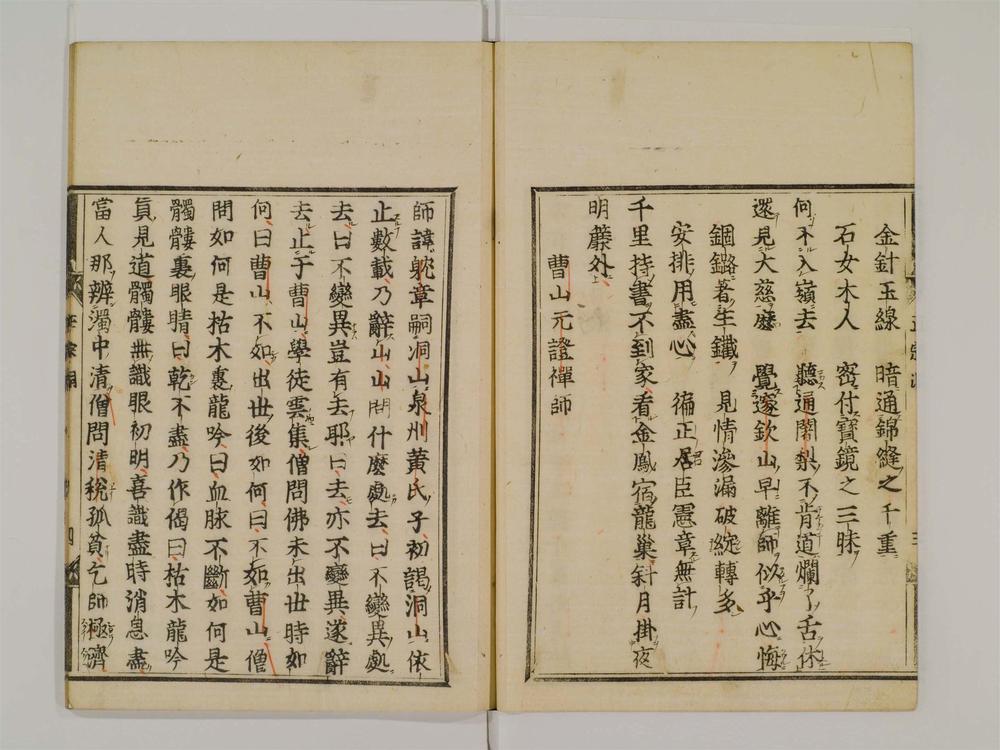 金針玉線　暗通錦縫之千重
石女木人　密付寶鏡之三昧
何不入嶺去　聽通闍梨不肯道爛了舌休
還見大慈麼　覺邃欽山早離師似乎心悔
錮鏴著生鐵　見情滲漏破綻轉多
安排用盡心　徧正君臣憲章無計
千里持書不到家看金鳳宿龍巢斜月掛夜
明簾外
曹山元證禪師
師諱躭章嗣洞山泉州黃氏子初謁洞山依
止數載乃辭山山問什麼處去曰不變異處
去曰不變異豈有去耶曰去亦不變異遂辭
去止于曹山學徒雲集僧問佛未出世時如
何曰曹山不如出世後如何曰不如曹山僧
問如何是枯木裏龍吟曰血脉不斷如何是
髑髏裏眼睛曰乾不盡乃作偈曰枯木龍吟
眞見道髑髏無識眼初明喜識盡時消息盡
當人那辨濁中清僧問清稅孤貧乞師拯濟